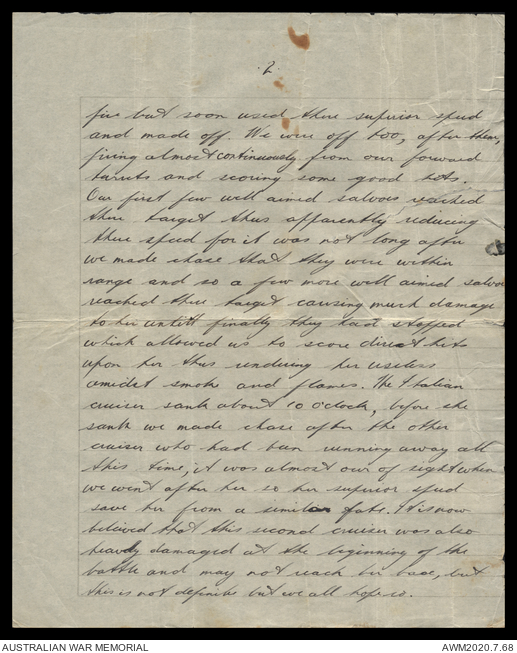 .2.
fire but soon used there superior speed
and made off. We were off too, after them,
firing almost continuously from our forward
turrets and scoring some good hits.
Our first few well aimed salvoes reached
there target thus apparently reducing
there speed for it was not long after
we made chase that they were within
range and so a few more well aimed salvoe
reached there target causing much damage
to her untill finally they had stopped
which allowed us to score direct hits
upon her thus rendering her useless
amidst smoke and flames. The Italian
cruiser sank about 10 o'clock, before she
sank we made chase after the other
cruiser who had been running away all
this time, it was almost out of sight when
we went after her so her superior speed
save her from a similar fate. It is now
beleived that this second cruiser was also
heavily damaged at the beginning of the
battle and may not reach her base, but
this is not definite but we all hope so.
AUSTRALIAN WAR MEMORIAL
AWM2020.7.68